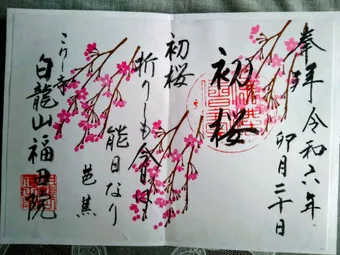 奉拝
令和六年
卯月二十日
初桜
初桜
折りしも今日は
能日なり
芭蕉
白龍山福田院